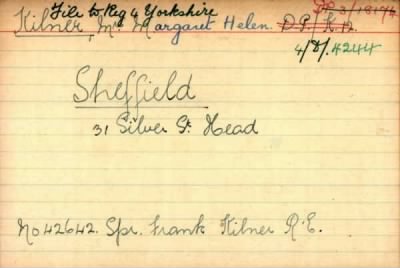 File to Reg 4 Yorkshire
Kilner, Mrs Margaret Helen. D.P./K.12.
4/D/.4244
Sheffield
31 Silver St. Head
No 42642. Spr. Frank Kilner R.E.